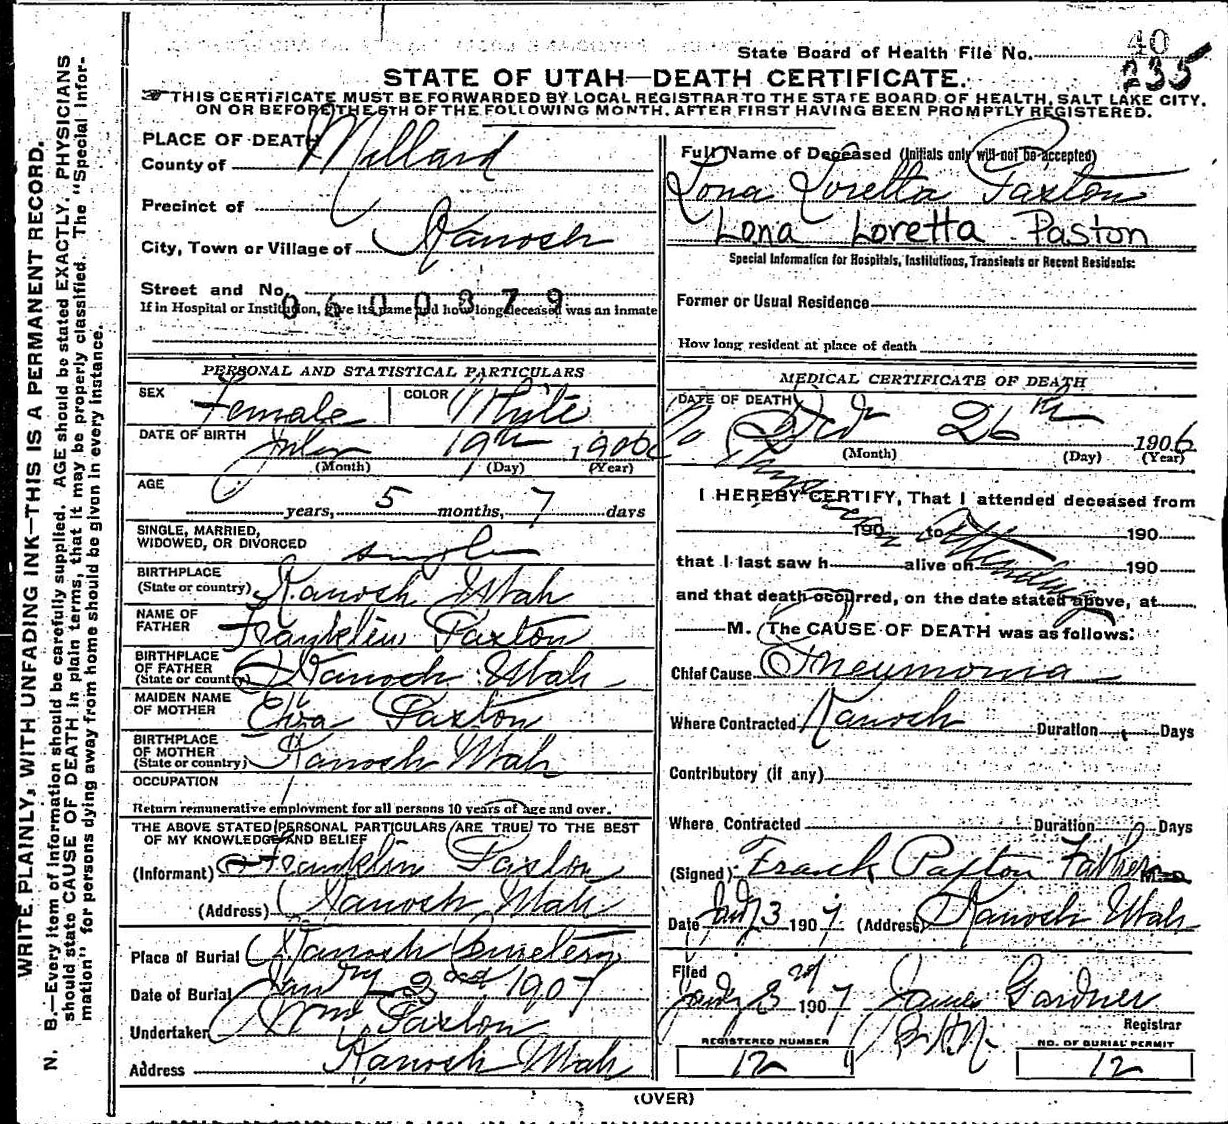 40
State Board of Health File No.
235
STATE OF UTAH—DEATH CERTIFICATE.
THIS CERTIFICATE MUST BE FORWARDED BY LOCAL REGISTRAR TO THE STATE BOARD OF HEALTH, SALT LAKE CITY,
ON OR BEFORE THE 5TH OF THE FOLLOWING MONTH, AFTER FIRST HAVING BEEN PROMPTLY REGISTERED.
WRITE PLAINLY, WITH UNFADING INK—THIS IS A PERMANENT RECORD.
N. B.—Every item of information should be carefully supplied. AGE should be stated EXACTLY. PHYSICIANS
should state CAUSE OF DEATH in plain terms, that it may be properly classified. The "Special Infor-
mation" for persons dying away from home should be given in every instance.
PLACE OF DEATH
County of Millard
Precinct of
City, Town or Village of Kanosh
Street and No.
0600379
If in Hospital or Institution, give its name and how long deceased was an inmate
PERSONAL AND STATISTICAL PARTICULARS
SEX Female COLOR White
DATE OF BIRTH July 19th 1906
(Month) (Day) (Year)
AGE
years, 5 months, 7 days
SINGLE, MARRIED,
WIDOWED, OR DIVORCED single
BIRTHPLACE
(State or country) Kanosh Utah
NAME OF
FATHER Franklin Paxton
BIRTHPLACE
OF FATHER
(State or country) Kanosh Utah
MAIDEN NAME
OF MOTHER Paxton
BIRTHPLACE
OF MOTHER
(State or country) Kanosh Utah
OCCUPATION
Return remunerative employment for all persons 10 years of age and over.
THE ABOVE STATED PERSONAL PARTICULARS ARE TRUE TO THE BEST
OF MY KNOWLEDGE AND BELIEF
(Informant) Franklin Paxton
(Address) Kanosh Utah
Place of Burial Kanosh Cemetery
Date of Burial Janry 2nd 1907
Undertaker Wm Paxton
Address Kanosh Utah
Full Name of Deceased (Initials only will not be accepted)
Lona Loretta Paxton
Lona Loretta Paston
Special Information for Hospitals, Institutions, Transients or Recent Residents:
Former or Usual Residence
How long resident at place of death
MEDICAL CERTIFICATE OF DEATH
DATE OF DEATH
No 26th 1906
(Month) (Day) (Year)
Physician
I HEREBY CERTIFY, That I attended deceased from
190 to 190
Attending
that I last saw h alive on 190
and that death occurred, on the date stated above, at
M. The CAUSE OF DEATH was as follows:
Chief Cause Pneumonia
Where Contracted Kanosh Duration Days
Contributory (if any)
Where Contracted Duration Days
(Signed) Frank Paxton Father M.D.
Date Jan 3 1907 (Address) Kanosh Utah
Filed
Jany 3rd 1907 James Gardner
Registrar
REGISTERED NUMBER
12
NO. OF BURIAL PERMIT
12
(OVER)